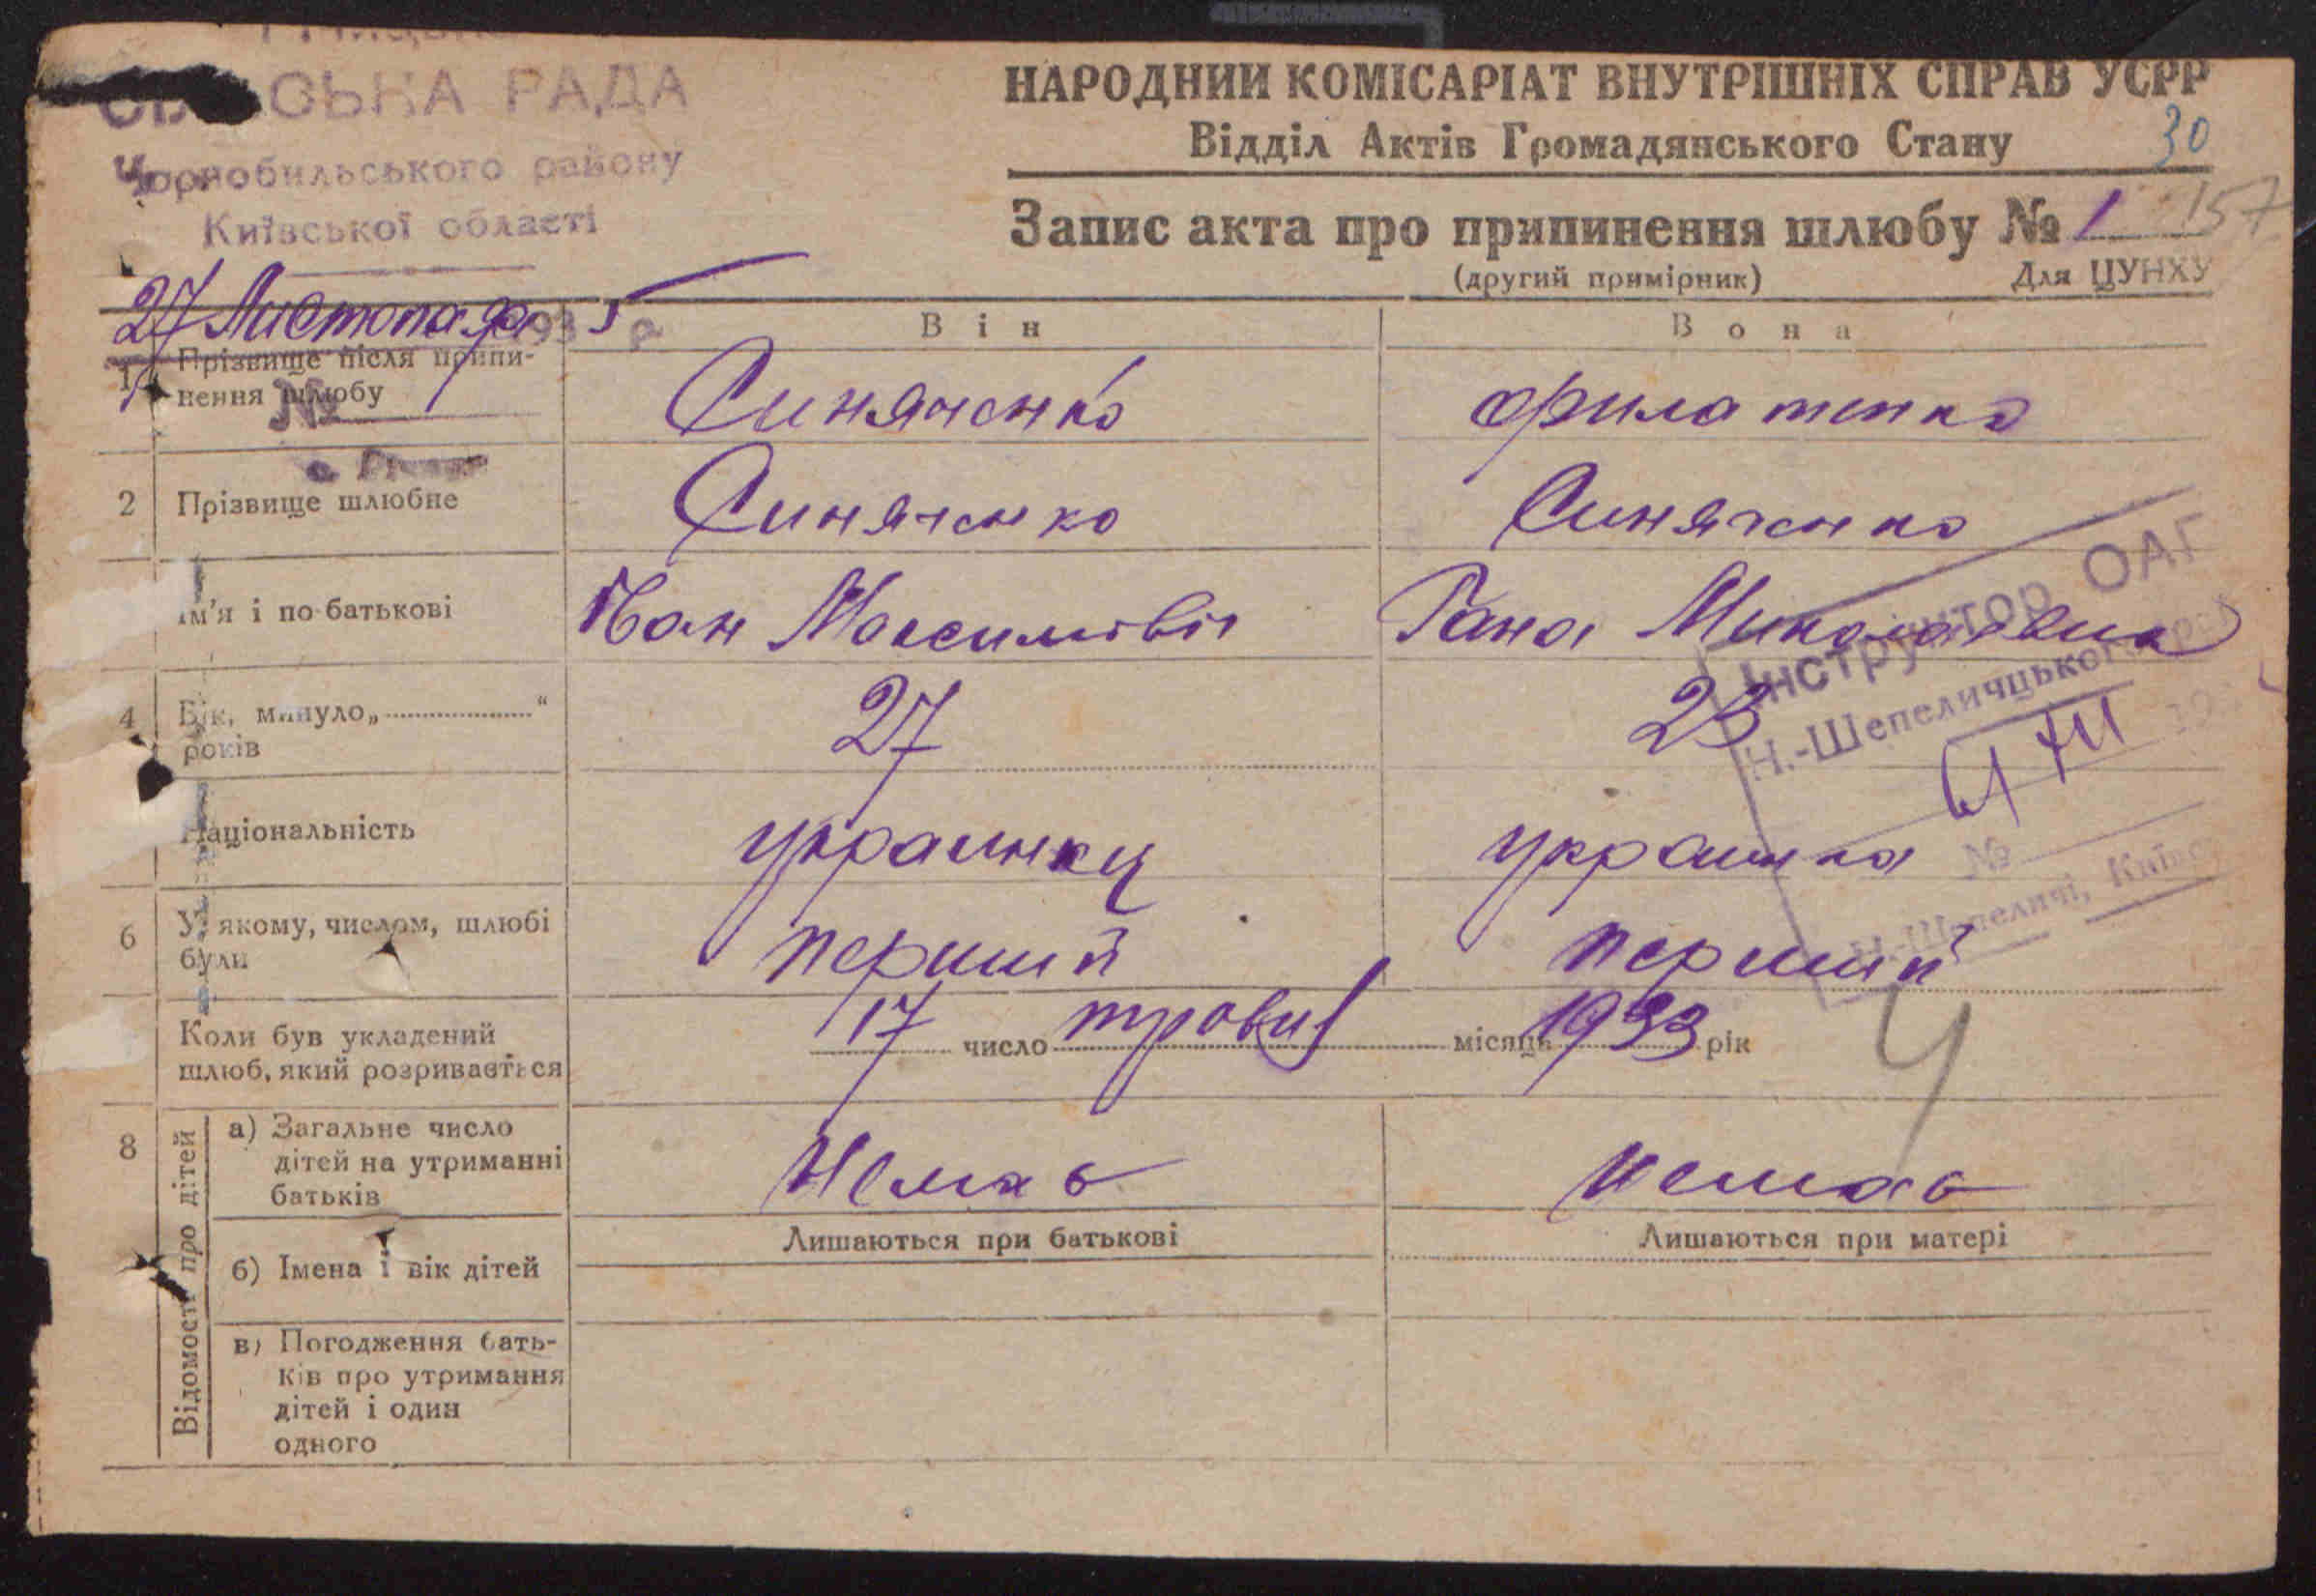 РАДА
Чорнобильського району
Київської області
27 Листопада 1935 р
№
НАРОДНИЙ КОМІСАРІАТ ВНУТРІШНІХ СПРАВ УСРР
Відділ Актів Громадянського Стану
30
Запис акта про припинення шлюбу № 1
157
(другий примірник)
Для ЦУНХУ
Він
Вона
1 Прізвище після припи-
нення шлюбу
Синяченко
Филатенко
2 Прізвище шлюбне
Синяченко
Синяченко
Ім'я і по-батькові
Іван Максимовіч
Гана Миколаевна
4 Вік, минуло „ “
років
27
23
Інструктор ОАГ
Н.-Шепеличцького
№
Н.-Шепеличі,
Національність
украинец
украинка
6 У якому, числом, шлюбі
були
перший
перший
Коли був укладений
шлюб, який розривається
17 число травня місяць 1933 рік
8 Відомості про дітей
а) Загальне число
дітей на утриманні
батьків
Немає
немає
Лишаються при батькові
Лишаються при матері
б) Імена і вік дітей
в) Погодження бать-
ків про утримання
дітей і один
одного